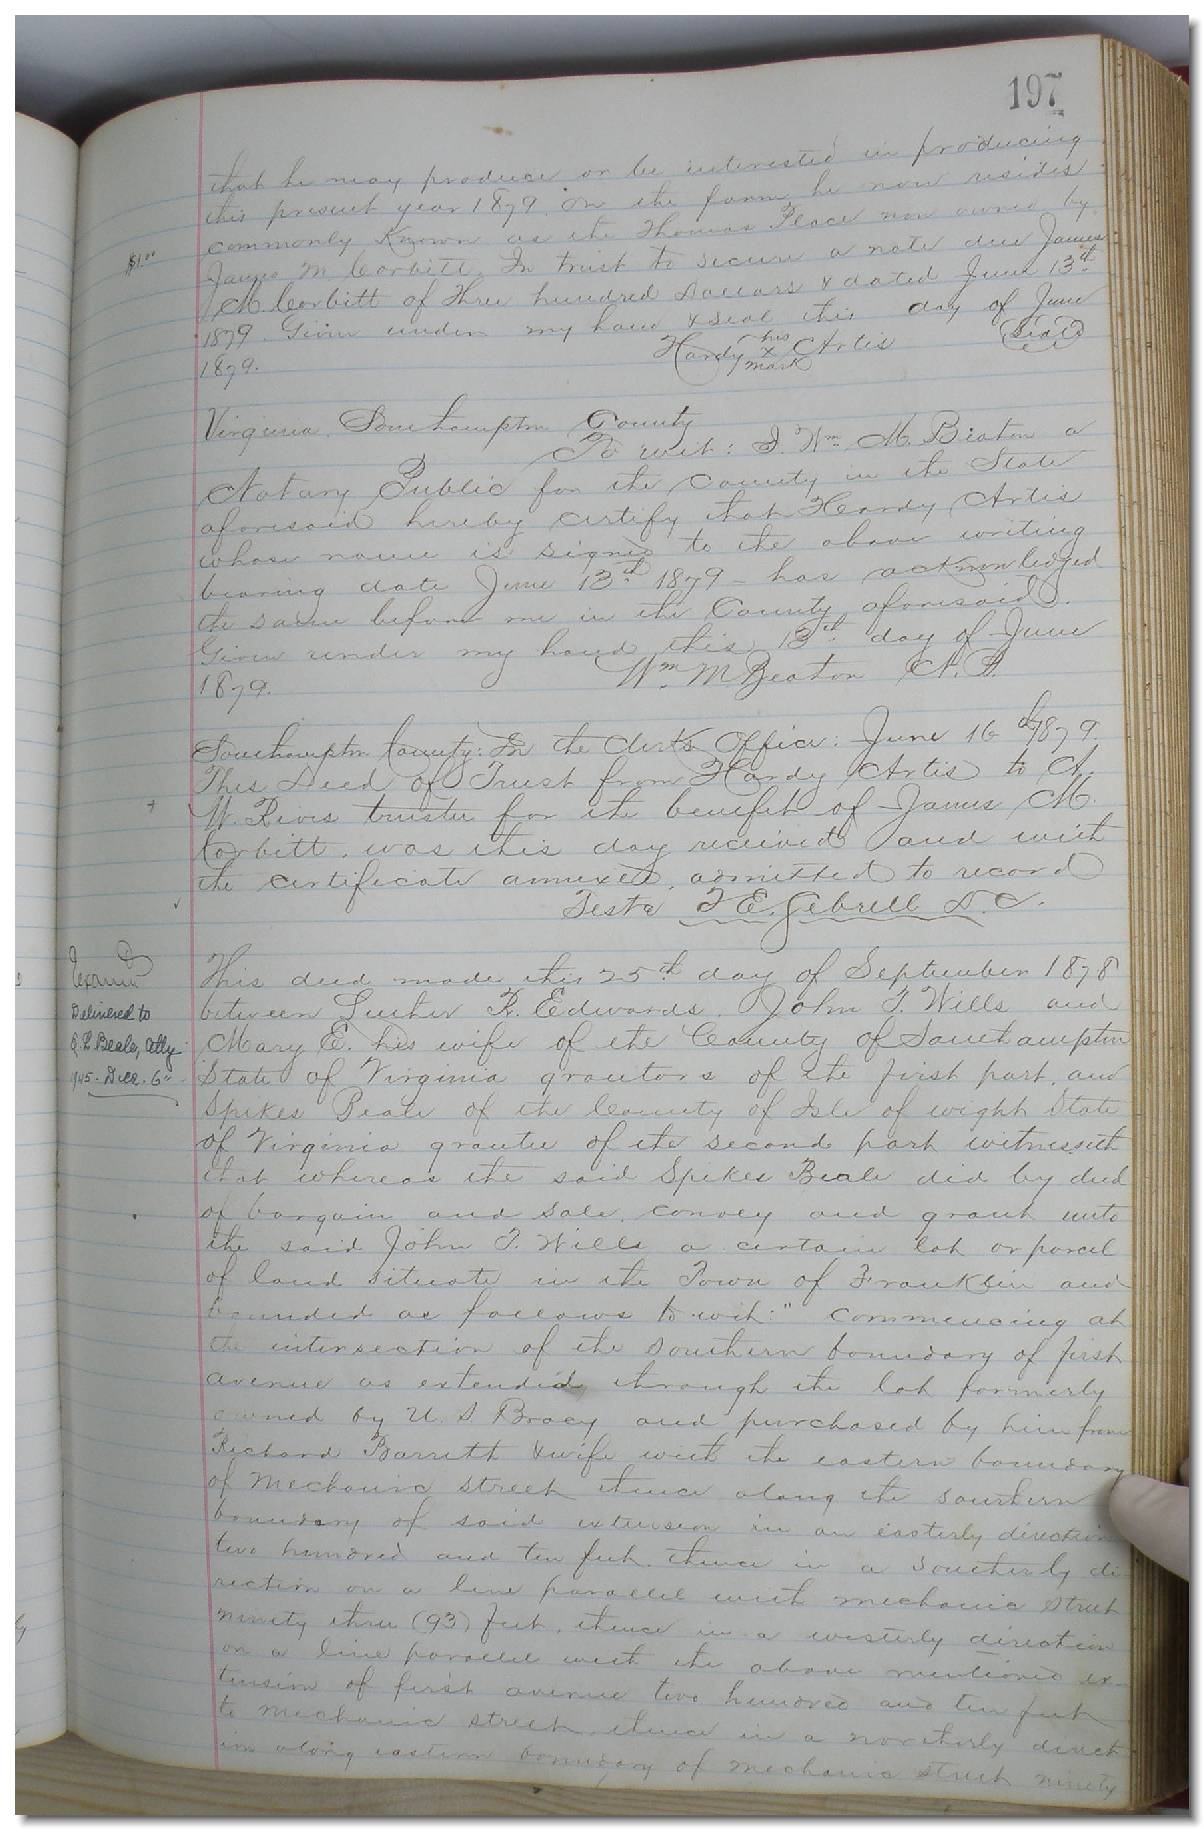 197
that he may produce or be interested in producing
this present year 1879. on the farm he now resides
commonly Known as the Thomas Place now owned by
$1.00
James M Corbitt. In trust to secure a note due James
M Corbitt of Three hundred Dollars & dated June 13th
1879 Given under my hand & seal this day of June
1879. Hardy his x mark Artis Seal
Virginia. Southampton County
To wit: I. Wm M. Beaton a
Notary Public for the County in the State
aforesaid hereby certify that Hardy Artis
whose name is signed to the above writing
bearing date June 13th 1879 - has acknowledged
the same before me in the County aforesaid.
Given under my hand this 13th day of June
1879. Wm M Beaton N.P.
Southampton County: In the Clerks Office: June 16th 1879.
This Deed of Trust from Hardy Artis to A.
W. Rives trustee for the benefit of James M.
Corbitt. was this day received and with
the certificate annexed, admitted to record
Teste D.C.
Examd
Delivered to
Beale, Atty
1945. Dec. 6"
This deed made this 25th day of September 1878
between Luther R. Edwards. John T. Wills and
Mary E. his wife of the County of Southampton
State of Virginia grantors of the first part, and
Spikes Beale of the County of Isle of wight State
of Virginia grantee of the second part witnesseth
that whereas the said Spikes Beale did by deed
of bargain and sale, convey and grant unto
the said John T. Wills a certain lot or parcel
of land situate in the Town of Franklin and
bounded as follows to wit: "Commencing at
the intersection of the southern boundary of first
avenue as extended through the lot formerly
owned by U. S Bracy and purchased by him from
Richard Barrett & wife with the eastern boundary
of Mechanic street thence along the southern
boundary of said extension in an easterly direction
two hundred and ten feet. thence in a southerly di
rection on a line parallel with mechanic street
ninety three (93) feet. thence in a westerly direction
on a line parallel with the above mentioned ex-
tension of first avenue two hundred and ten feet
to mechanic street. thence in a northerly direct
ion along eastern boundary of mechanic street ninety